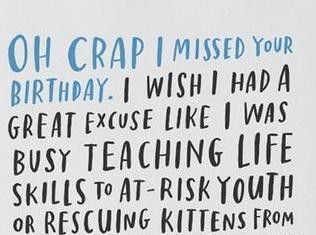 OH CRAP I MISSED YOUR
BIRTHDAY. I WISH I HAD A
GREAT EXCUSE LIKE I WAS
BUSY TEACHING LIFE
SKILLS TO AT-RISK YOUTH
OR RESCUING KITTENS FROM